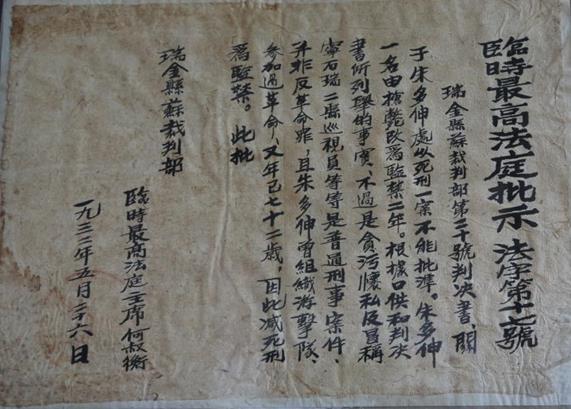 臨時最高法庭批示 法字第十七號
瑞金縣蘇裁判部第二十號判决書，關
于朱多伸處以死刑一案不能批準。朱多伸
一名由槍斃改爲監禁二年。根據口供和判决
書所列舉的事實，不過是貪污懷私及冒稱
寧石瑞三縣巡視員等等是普通刑事案件，
并非反革命罪，且朱多伸曾組織游擊隊、
参加過革命，又年已七十二歲，因此减死刑
爲監禁。 此批
瑞金縣蘇裁判部
臨時最高法庭主席何叔衡
一九三二年五月二十六日